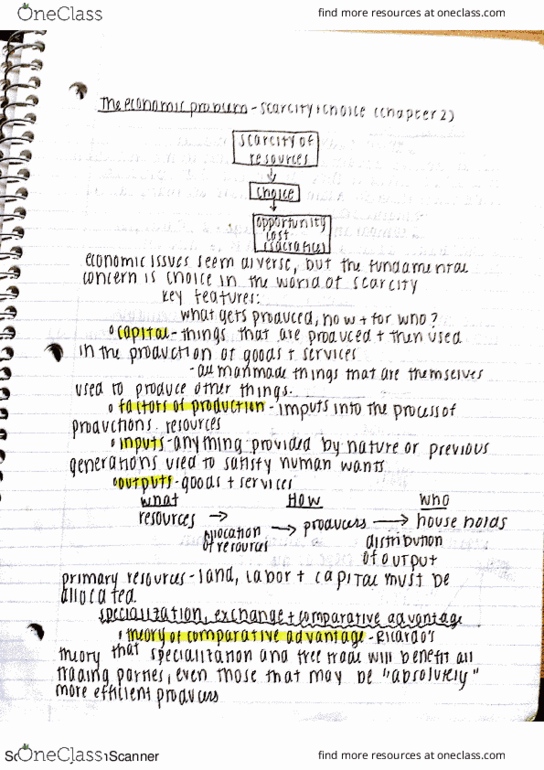 OneClass
find more resources at oneclass.com
The economic problem - scarcity + choice (chapter 2)
scarcity of
resources
choice
opportunity
cost
(sacrafice)
economic issues seem diverse, but the fundamental
concern is choice in the world of scarcity
key features:
what gets produced, how + for who?
capital - things that are produced + then used
in the production of goods + services
- all manmade things that are themselves
used to produce other things.
factors of production - imputs into the process of
productions. resources
inputs - anything provided by nature or previous
generations used to satisfy human wants
outputs - goods + services
what How who
resources → → producers → house holds
allocation
of resources
distribution
of output
primary resources - land, labor + capital must be
allocated.
specialization, exchange + comparative advantage
theory of comparative advantage - Ricardo's
theory that specialization and free trade will benefit all
trading parties, even those that may be "absolutely"
more efficient producers
find more resources at oneclass.com
OneClass
Scanner
find more resources at oneclass.com